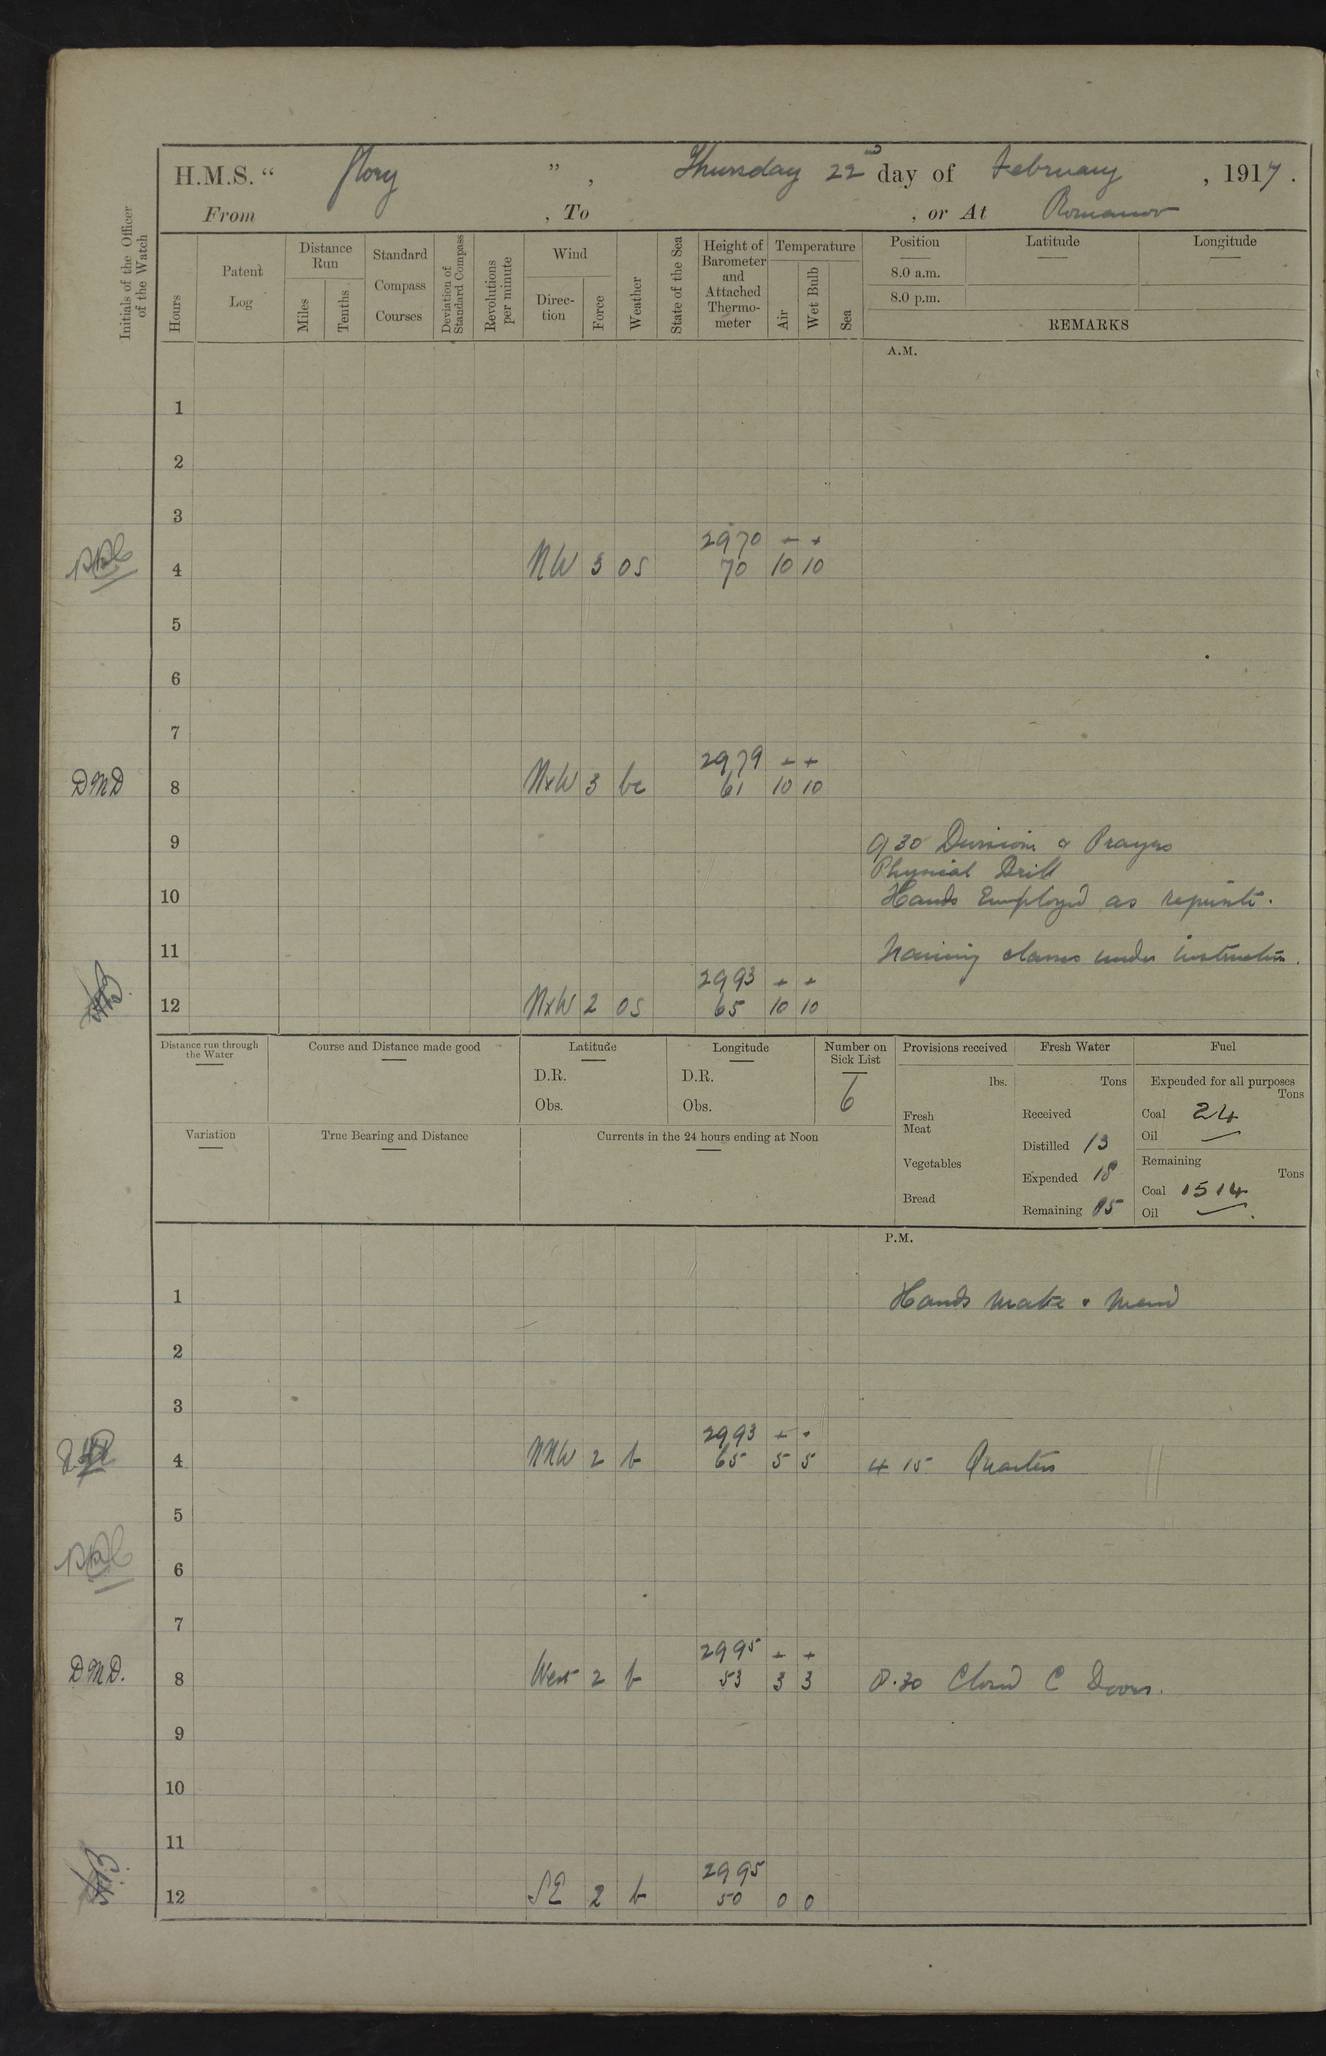 H.M.S. “ Glory ”, Thursday 22nd day of February, 1917.
From , To , or At Romanov
Initials of the Officer of the Watch
Hours
Patent Log
Distance Run
Miles
Tenths
Standard Compass Courses
Deviation of Standard Compass
Revolutions per minute
Wind
Direction
Force
Weather
State of the Sea
Height of Barometer and Attached Thermometer
Temperature
Air
Wet Bulb
Sea
Position
8.0 a.m.
8.0 p.m.
Latitude
Longitude
REMARKS
A.M.
1
2
3
2970 + +
4 NW 3 os 70 10 10
5
6
7
2979 + +
DMD 8 NxW 3 bc 61 10 10
9 9 30 Divisions & Prayers
Physical Drill
10 Hands Employed as requisite.
11 Training classes under instruction.
2993 + +
12 NxW 2 os 65 10 10
Distance run through the Water
Course and Distance made good
Latitude
D.R.
Obs.
Longitude
D.R.
Obs.
Number on Sick List
6
Variation
True Bearing and Distance
Currents in the 24 hours ending at Noon
Provisions received
lbs.
Fresh Meat
Vegetables
Bread
Fresh Water
Tons
Received
Distilled 13
Expended 18
Remaining 85
Fuel
Expended for all purposes
Tons
Coal 24
Oil —
Remaining
Tons
Coal 1514
Oil —
P.M.
1 Hands make & mend
2
3
2993 + +
4 NNW 2 b 65 5 5 4 15 Quarters
5
6
7
2995 + +
DMD. 8 West 2 b 53 3 3 8.30 Closed C Doors.
9
10
11
2995
12 SE 2 b 50 0 0